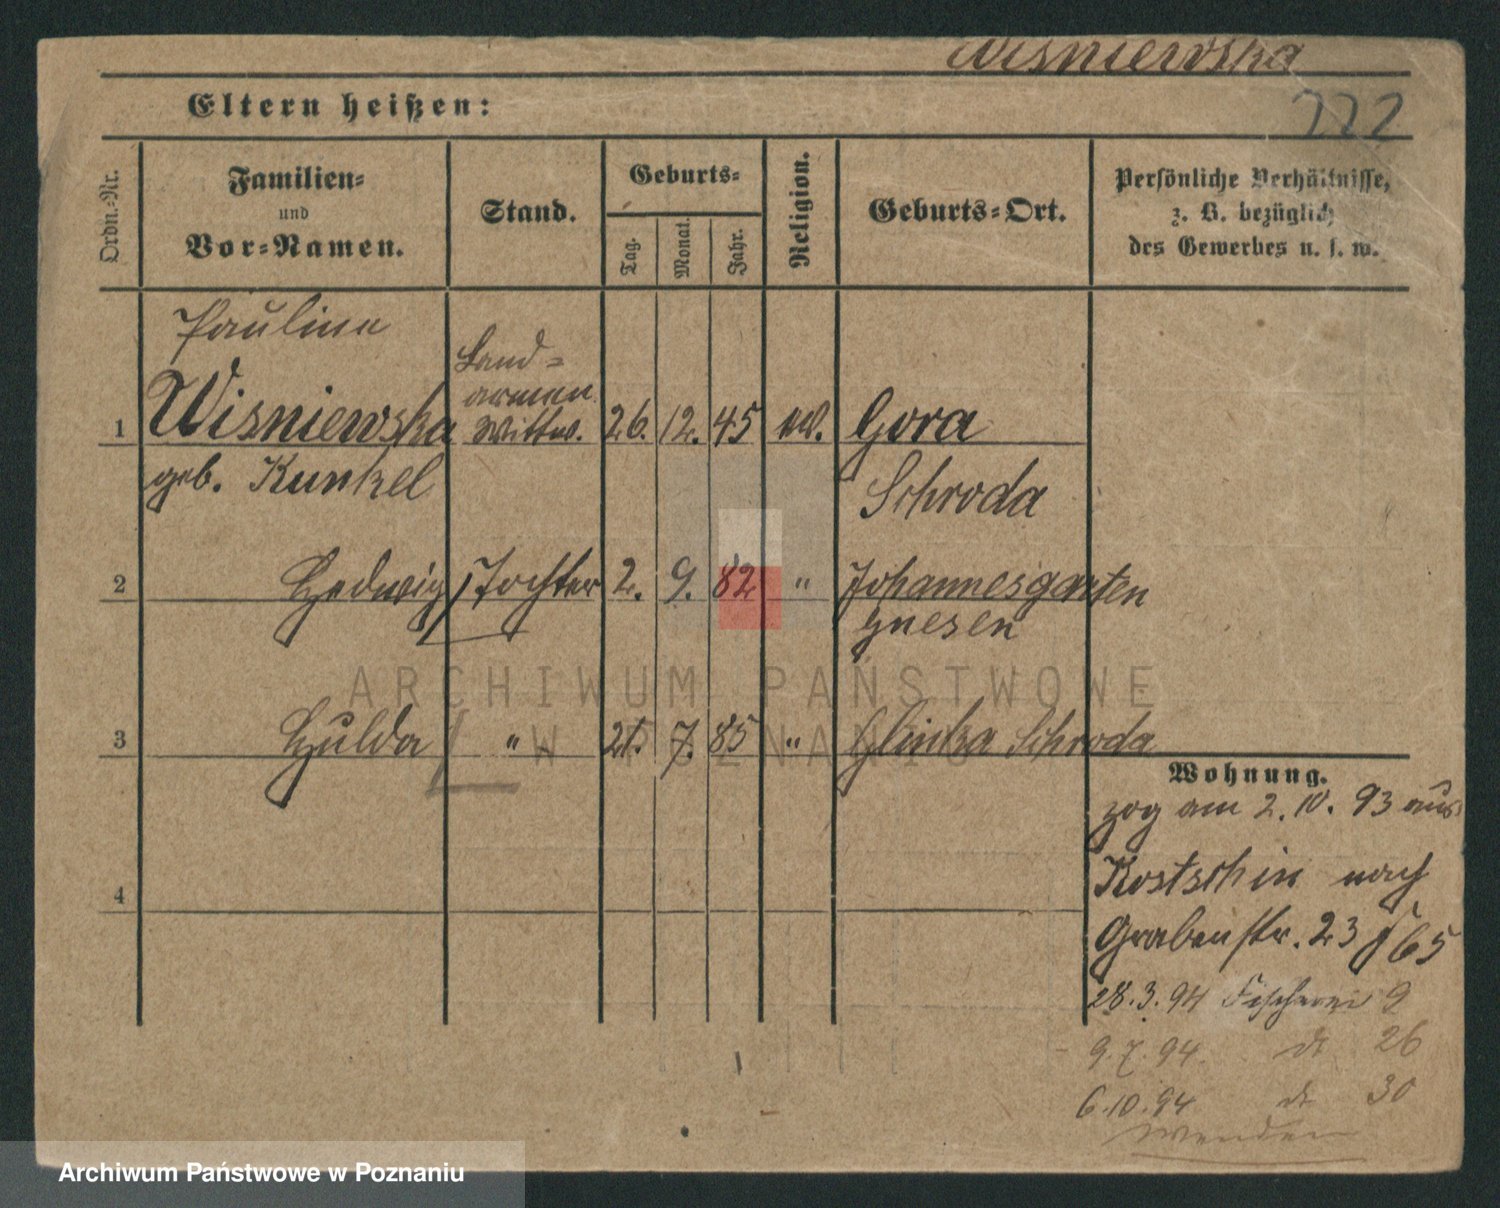 Wisniewska
Eltern heißen:
222
Ordn.-Nr.
Familien-
und
Vor-Namen.
Stand.
Geburts-
Tag.
Monat.
Jahr.
Religion.
Geburts-Ort.
Persönliche Verhältnisse,
z. B. bezüglich
des Gewerbes u. s. w.
Pauline
Land-
armen
1 Wisniewska Wittw. 26. 12. 45 Gora
geb. Kunkel Schroda
2 Hedwig Tochter 2. 9. 82 " Johannesgarten
Gnesen
ARCHIWUM PAŃSTWOWE
W POZNANIU
3 Hulda " 21. 7. 85 " Glinka Schroda
Wohnung.
zog am 2.10.93 aus
Kostschin nach
4
Grabenstr. 23 65
28.3.94 Fischerei 9
9.7.94. dt 26
6.10.94 dt 30
wenden
Archiwum Państwowe w Poznaniu